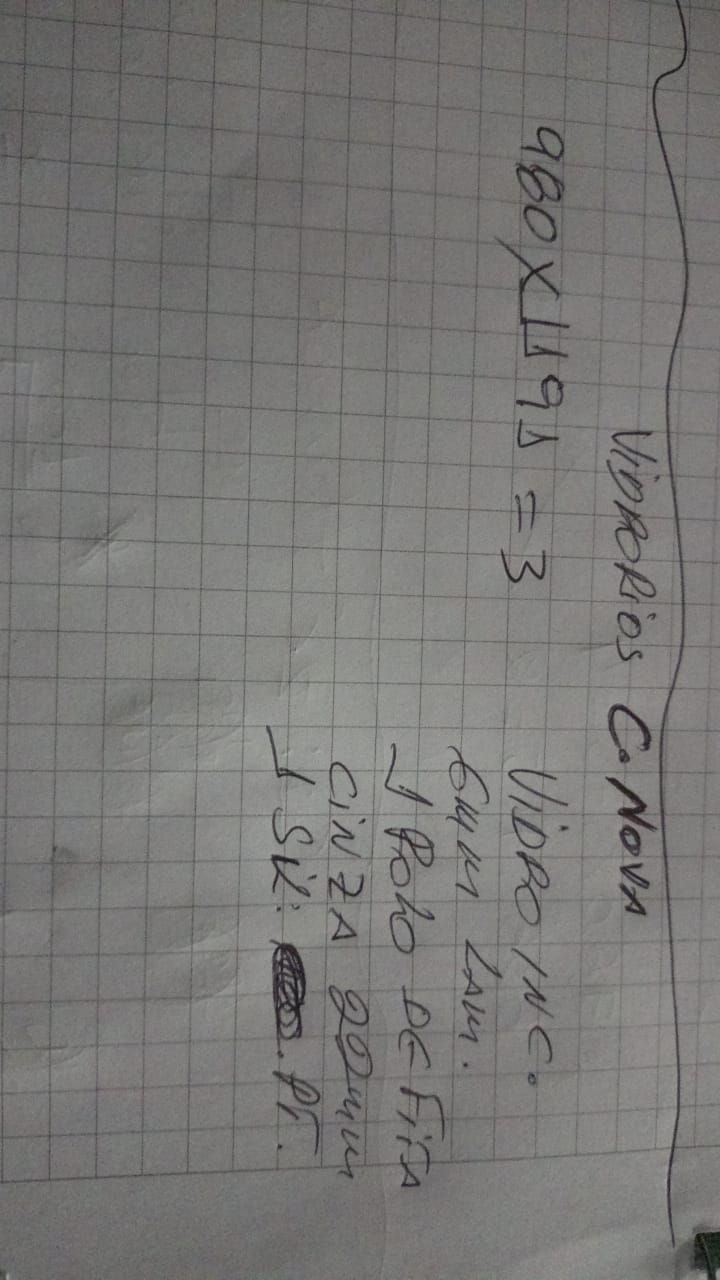 VIDRORIOS C. NOVA
980X1191 = 3
VIDRO INC.
6mm LAM.
1 ROLO DE FITA
CINZA 20mm
1 SIL: PT.